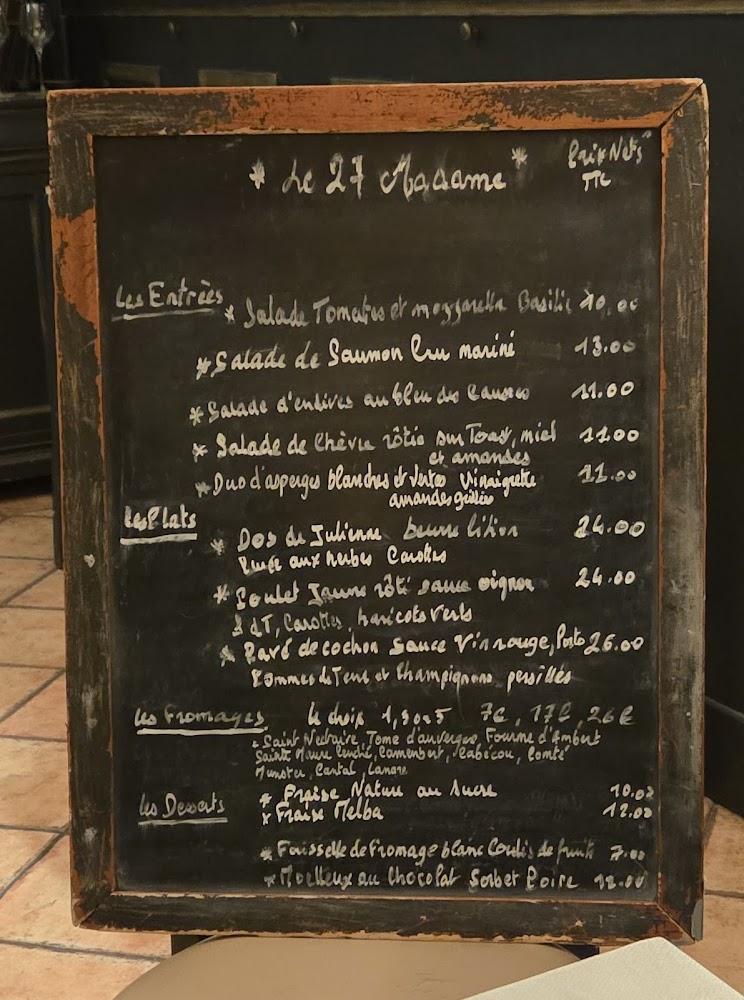 * Le 27 Madame *
Prix Nets
TTC
Les Entrées
* Salade Tomates et mozzarella Basilic 10,00
* Salade de Saumon Cru mariné 13.00
* Salade d'endives au bleu des Causses 11.00
* Salade de Chèvre rôtie sur Toast, miel 11.00
et amandes
* Duo d'asperges blanches et vertes Vinaigrette 11.00
amandes grillées
Les Plats
* Dos de Julienne beurre 24.00
Purée aux herbes Carottes
* Poulet Jaune rôti sauce oignon 24.00
PdT, Carottes, haricots verts
* Pavé de cochon Sauce Vin rouge, Porto 26.00
Pommes de Terre et Champignons persillés
Les Fromages Le choix 1, 3 ou 5 7€, 17€, 26€
* Saint Nectaire, Tome d'auvergne, Fourme d'Ambert
Sainte Maure Cendré, Camembert, Cabécou, Comté
Munster, Cantal,
Les Desserts
* Fraise Nature au Sucre 10.00
* Fraise Melba 12.00
* Faisselle de Fromage blanc Coulis de fruits 7.00
* Moelleux au Chocolat Sorbet Poire 12.00